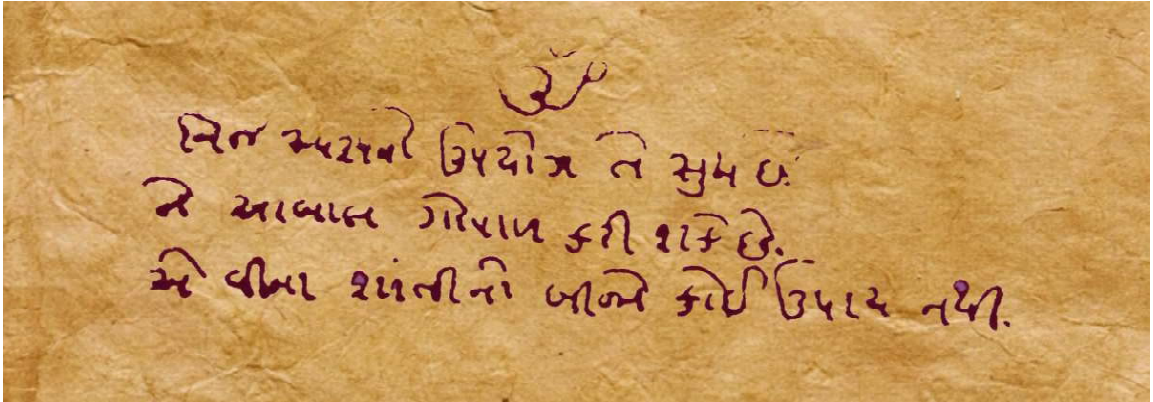 ૐ
ઉપયોગ તે સુખ છે.
તે આબાલ ગોપાળ કરી શકે છે.
એ વીના શાંતીનો બીજો કોઈ ઉપાય નથી.